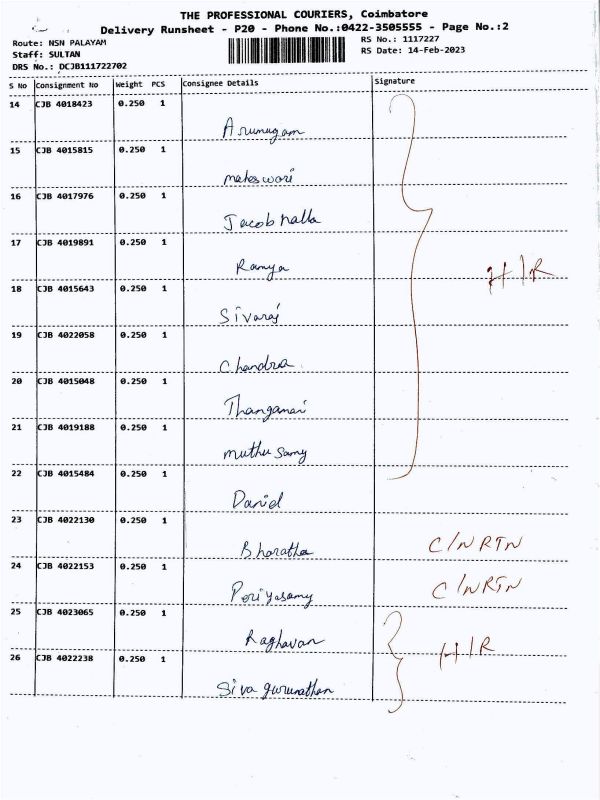 THE PROFESSIONAL COURIERS, Coimbatore
Delivery Runsheet - P20 - Phone No.:0422-3505555 - Page No.:2
Route: NSN PALAYAM
RS No.: 1117227
Staff: SULTAN
RS Date: 14-Feb-2023
DRS No.: DCJB111722702
S No Consignment No Weight PCS Consignee Details Signature
14 CJB 4018423 0.250 1
Arumugam
15 CJB 4015815 0.250 1
maheswari
16 CJB 4017976 0.250 1
Jacob nalla
17 CJB 4019891 0.250 1
Ramya
H/R
18 CJB 4015643 0.250 1
Sivaraj
19 CJB 4022058 0.250 1
Chandra
20 CJB 4015048 0.250 1
Thangamari
21 CJB 4019188 0.250 1
muthu samy
22 CJB 4015484 0.250 1
Daniel
23 CJB 4022130 0.250 1
Bharatha C/NRTN
24 CJB 4022153 0.250 1
Periyasamy C/NRTN
25 CJB 4023065 0.250 1
Raghavan H/R
26 CJB 4022238 0.250 1
Siva gurunathan